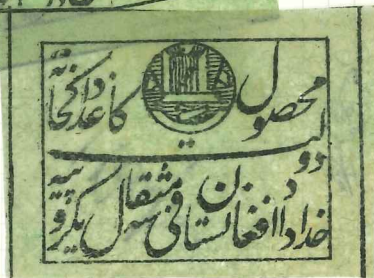 محصول کاغذ داکخانه
دولت
خداداد افغانستان فی مثقال سه یکروپیه